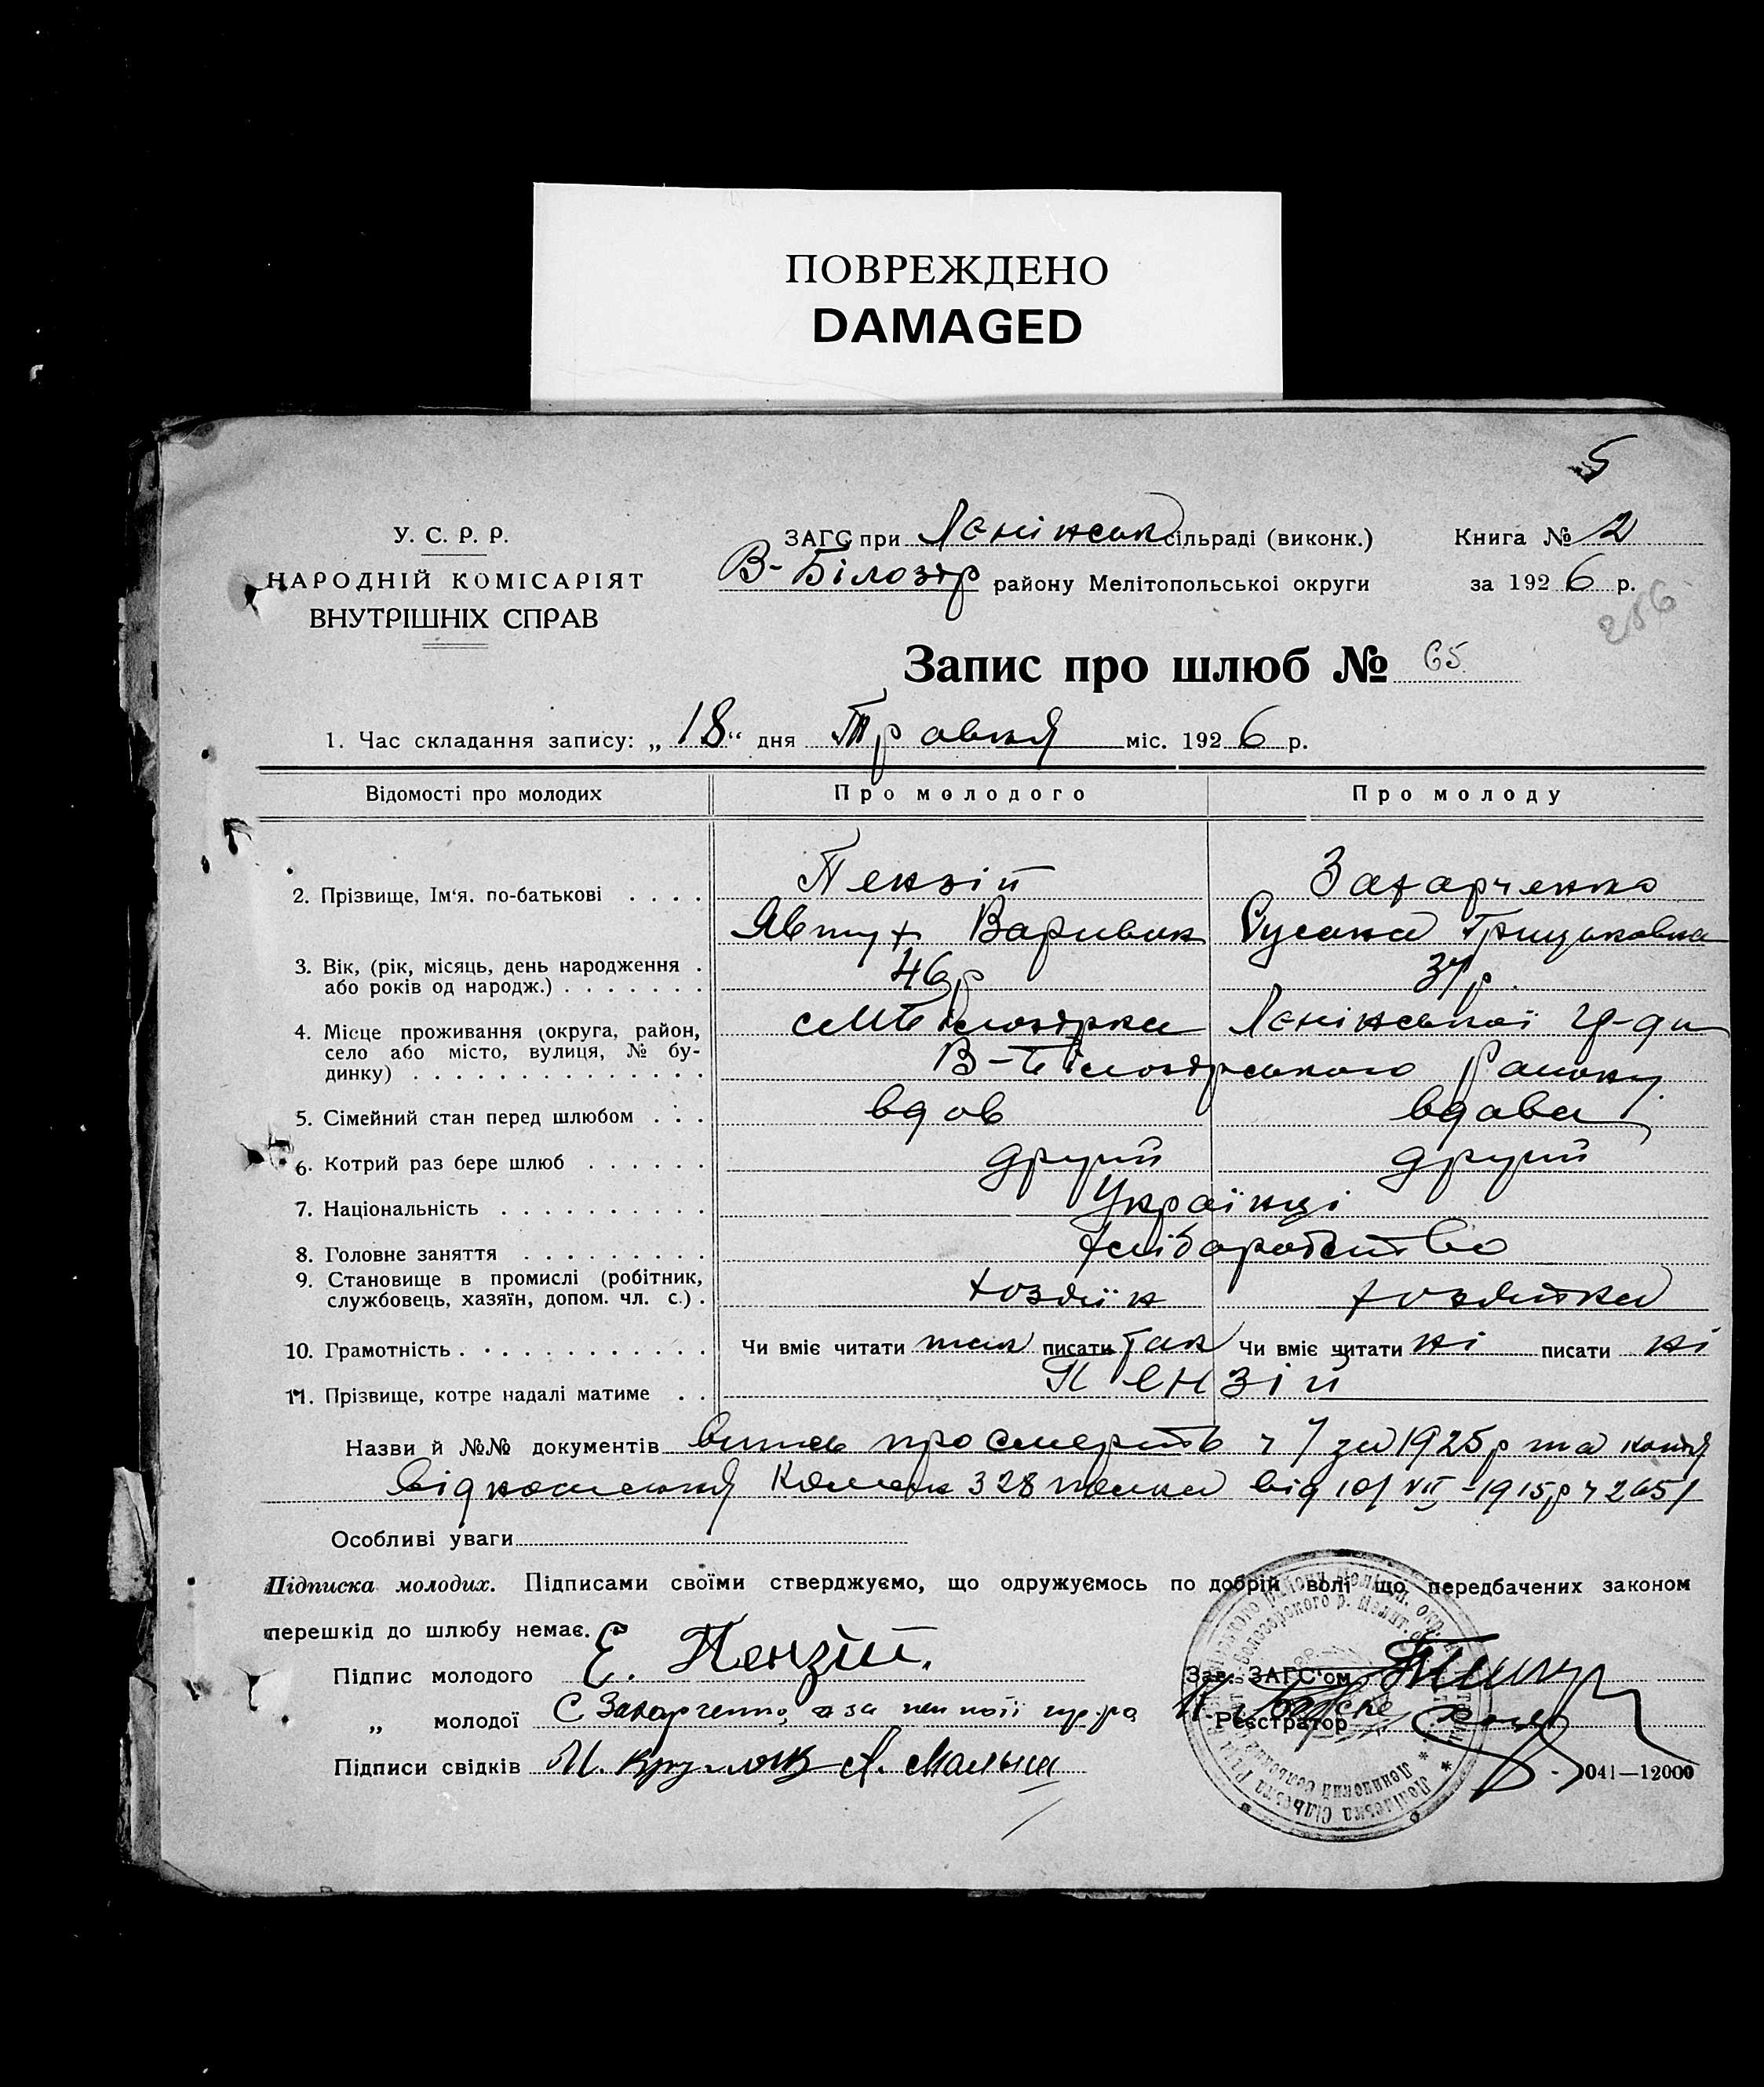 ПОВРЕЖДЕНО
DAMAGED
5
У. С. Р. Р.
НАРОДНІЙ КОМІСАРІЯТ
ВНУТРІШНІХ СПРАВ
ЗАГС при Лєнінськ сільраді (виконк.)
В-Білозір району Мелітопольської округи
Книга № 2
за 1926 р.
286
Запис про шлюб № 65
1. Час складання запису: „18“ дня Травня міс. 1926 р.
Відомості про молодих Про молодого Про молоду
2. Прізвище, Ім‘я. по-батькові . . . . Пензій Захарченко
Явтух Варивон Сусана Грицьковна
3. Вік, (рік, місяць, день народження . або років од народж.) . . . . . . . 46 р 37 р.
4. Місце проживання (округа, район, Лєнінської
село або місто, вулиця, № бу-
динку) . . . . . . . . . . . . . . В-Білозірського Району
5. Сімейний стан перед шлюбом . . . вдов вдова
6. Котрий раз бере шлюб . . . . . . другий другий
7. Національність . . . . . . . . . . Українці
8. Головне заняття . . . . . . . . . хліборобство
9. Становище в промислі (робітник,
службовець, хазяїн, допом. чл. с.) . хозяїн хозяйка
10. Грамотність . . . . . . . . . . . . Чи вміє читати так писати так Чи вміє читати ні писати ні
11. Прізвище, котре надалі матиме . . Пензій
Назви й №№ документів витяг про смерть ч 7 за 1925 р та копія
відношення 328 полка від 10/VII-1915 р ч 2651
Особливі уваги
Підписка молодих. Підписами своїми стверджуємо, що одружуємось по добрій волі що передбачених законом
перешкід до шлюбу немає.
Підпис молодого Е. Пензій.
„ молодої С Захарченко, а за
Підписи свідків М. А. Малыш
Зав. ЗАГС'ом
Реєстратор
041—12000